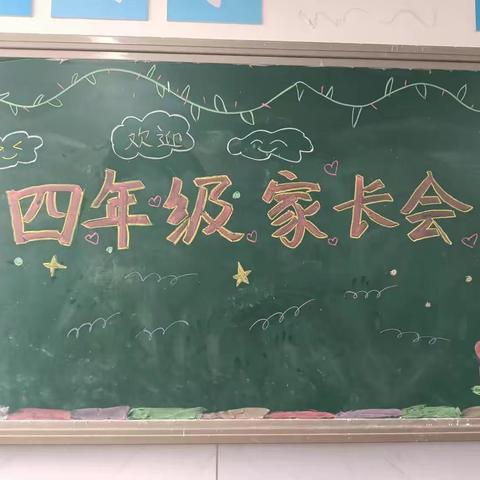 欢迎
四年级家长会